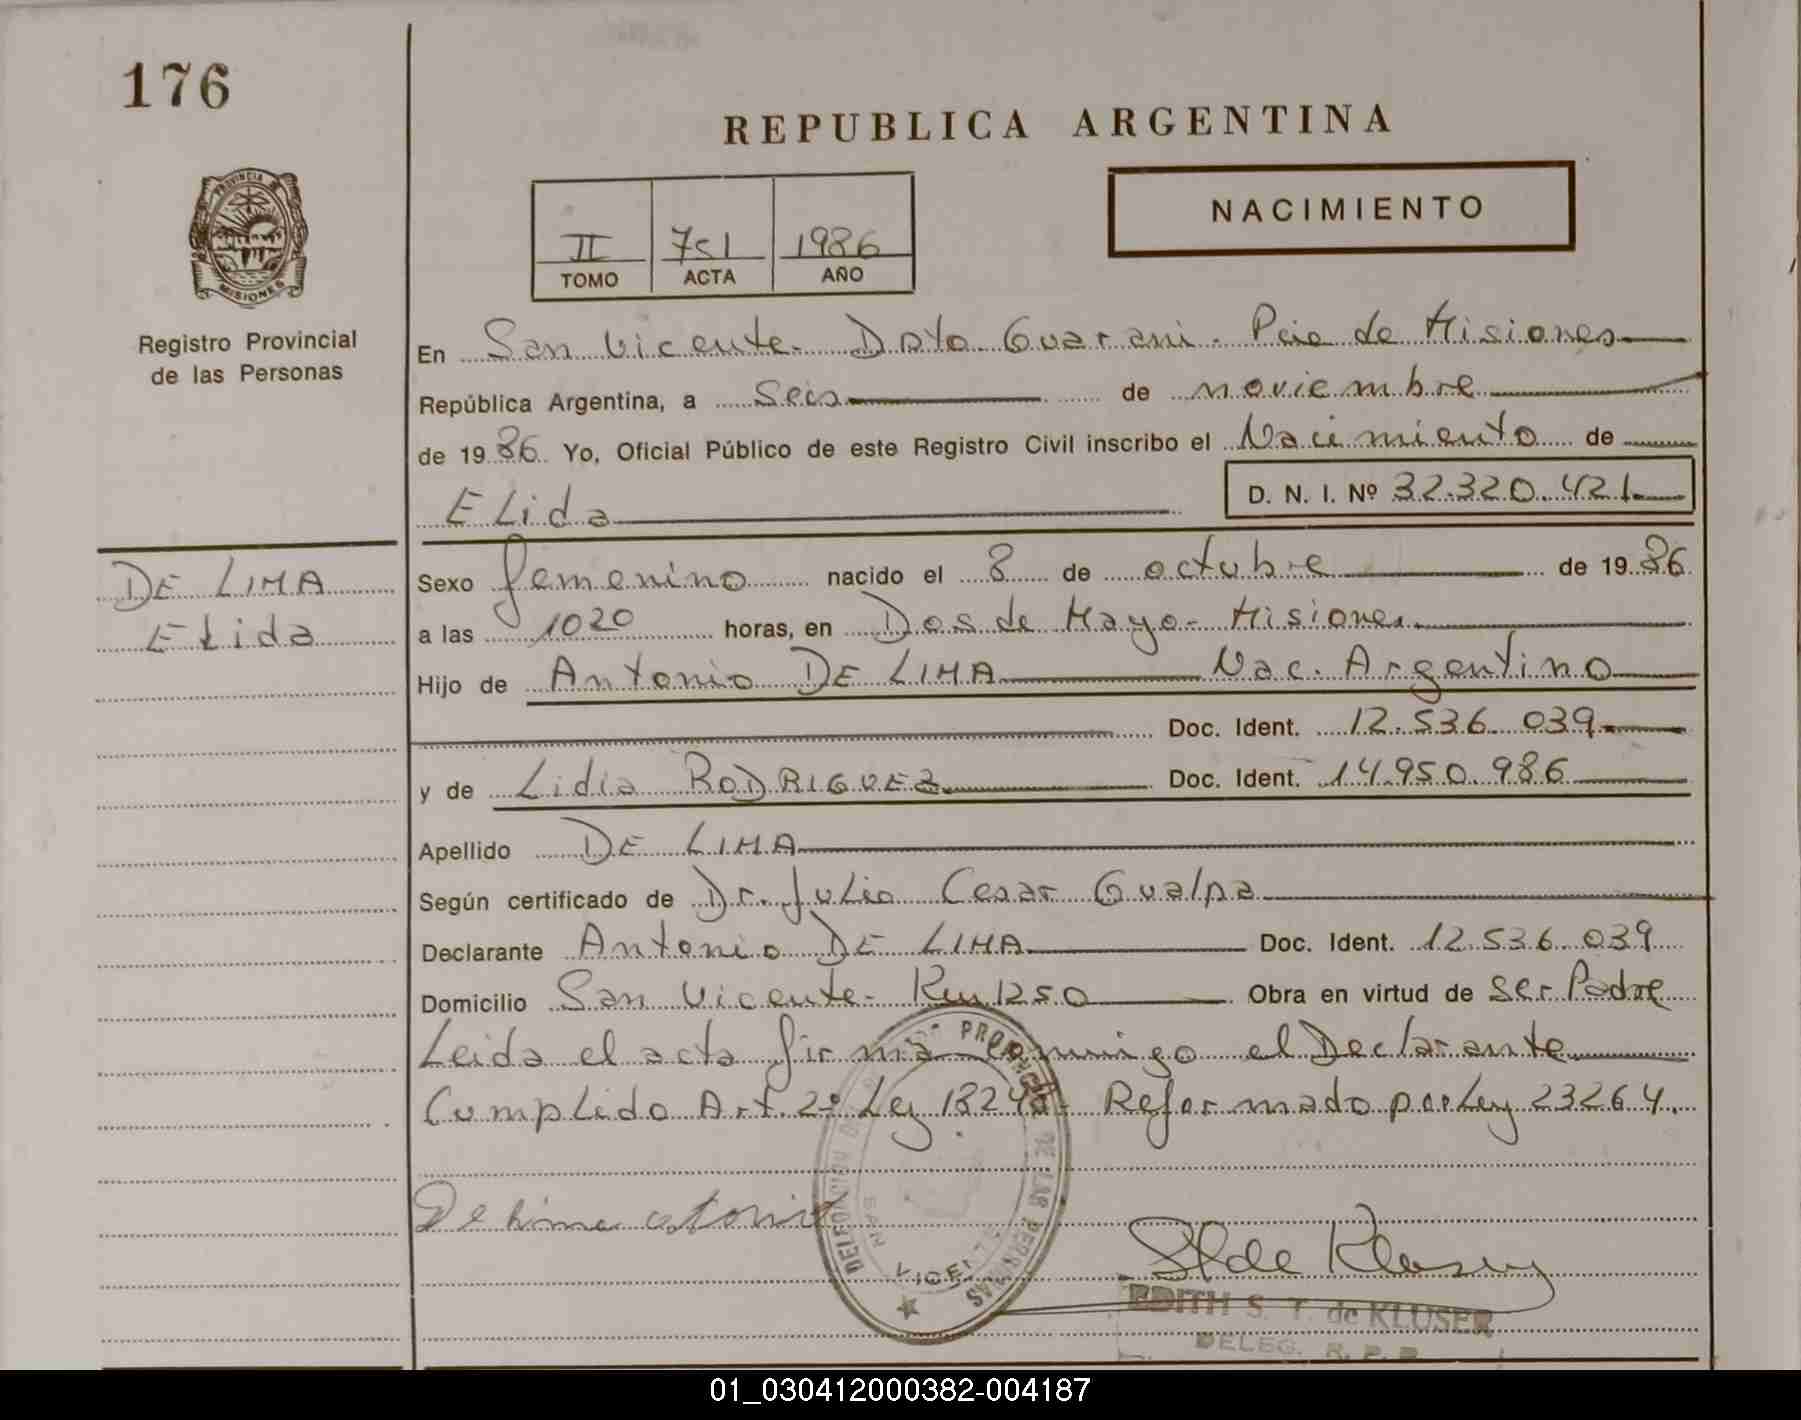 176
REPUBLICA ARGENTINA
NACIMIENTO
PROVINCIA DE
MISIONES
Registro Provincial
de las Personas
II 751 1986
TOMO ACTA AÑO
En San Vicente. Dpto Guarani. Pcia de Misiones
República Argentina, a Seis de noviembre
de 1986 Yo, Oficial Público de este Registro Civil inscribo el Nacimiento de
Elida D. N. I. Nº 32.320.421
DE LIMA
Elida
Sexo femenino nacido el 8 de octubre de 1986
a las 1020 horas, en Dos de Mayo - Misiones.
Hijo de Antonio DE LIMA Nac. Argentino
Doc. Ident. 12.536.039
y de Lidia RODRIGUEZ Doc. Ident. 14.950.986
Apellido DE LIMA
Según certificado de Dr. Julio Cesar Gualpa
Declarante Antonio DE LIMA Doc. Ident. 12.536.039
Domicilio San Vicente - Km 1250 Obra en virtud de ser Padre
Leida el acta firma conmigo el Declarante
Cumplido Art. 2º Ley 18248 - Reformado por Ley 23264.
De lima
EDITH S. T. de KLUSER
DELEG. R. P. P.
01_030412000382-004187